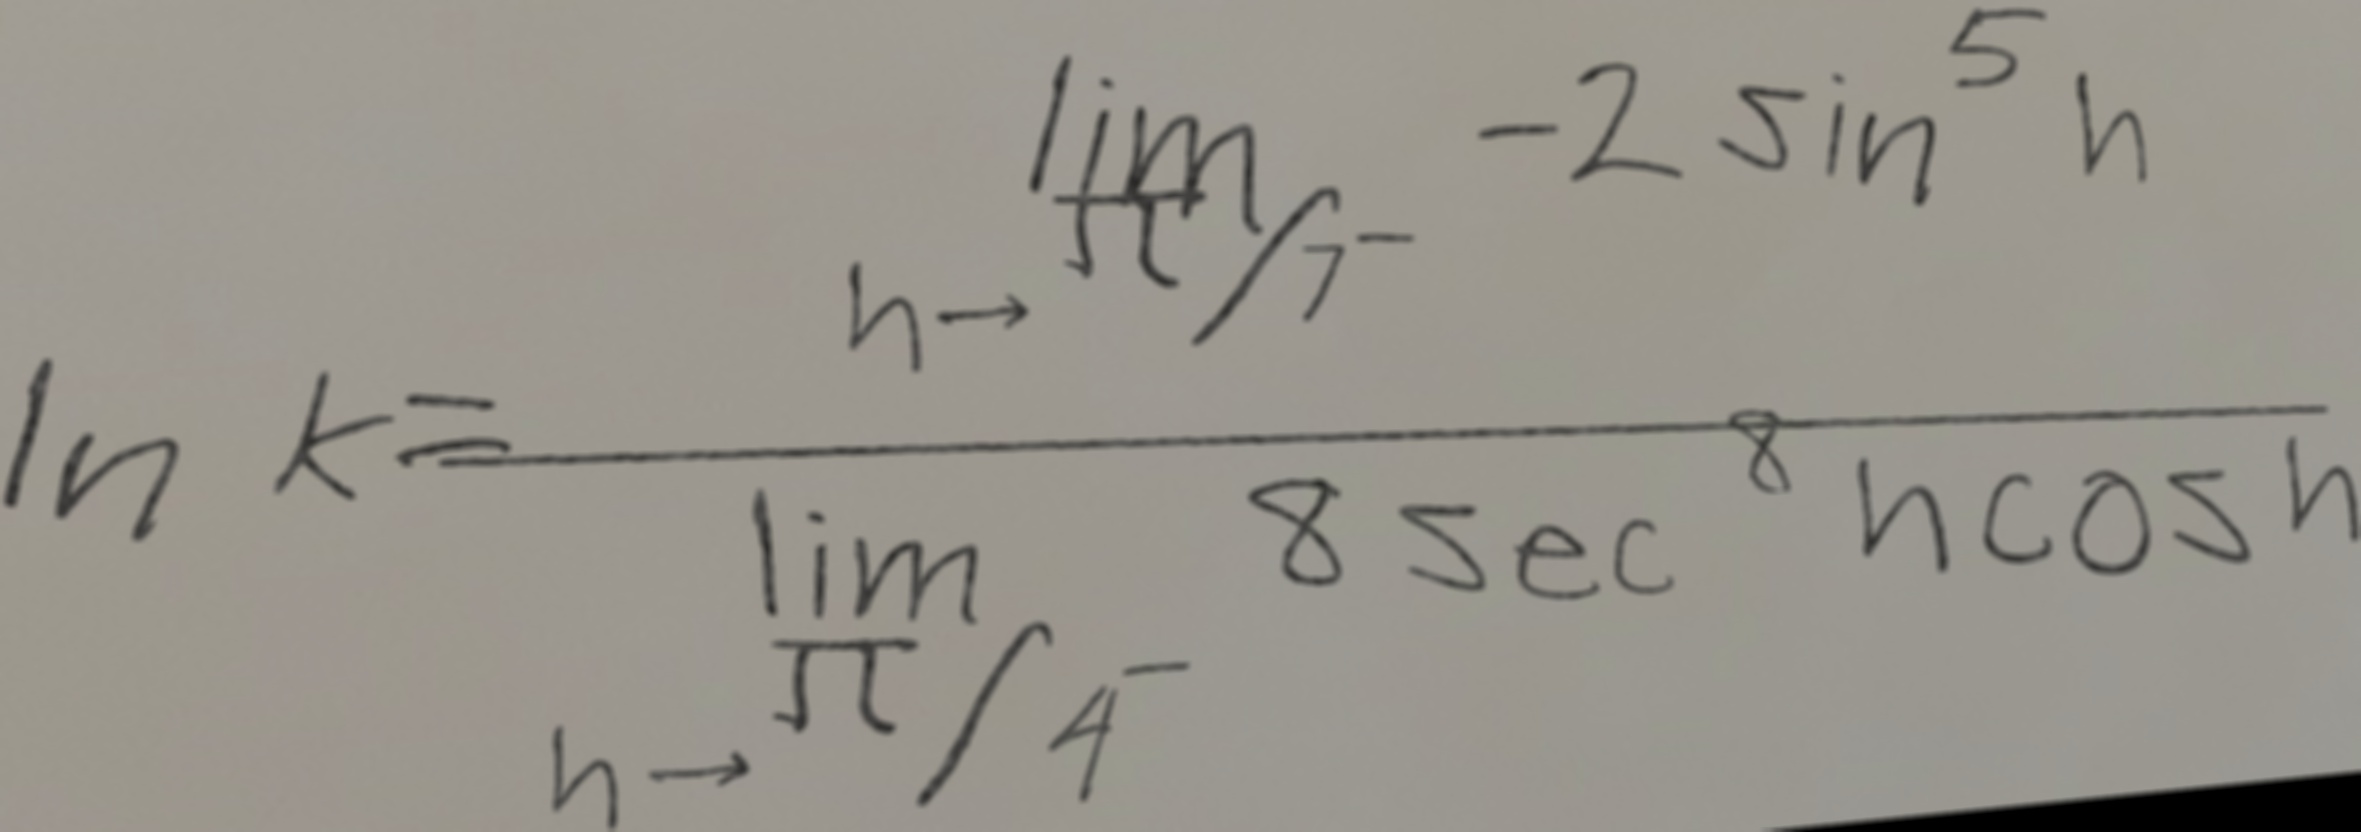 ln k = \frac{\lim_{n \to \pi/7^-} -2 \sin^5 n}{\lim_{n \to \pi/4^-} 8 \sec^8 n \cos n}